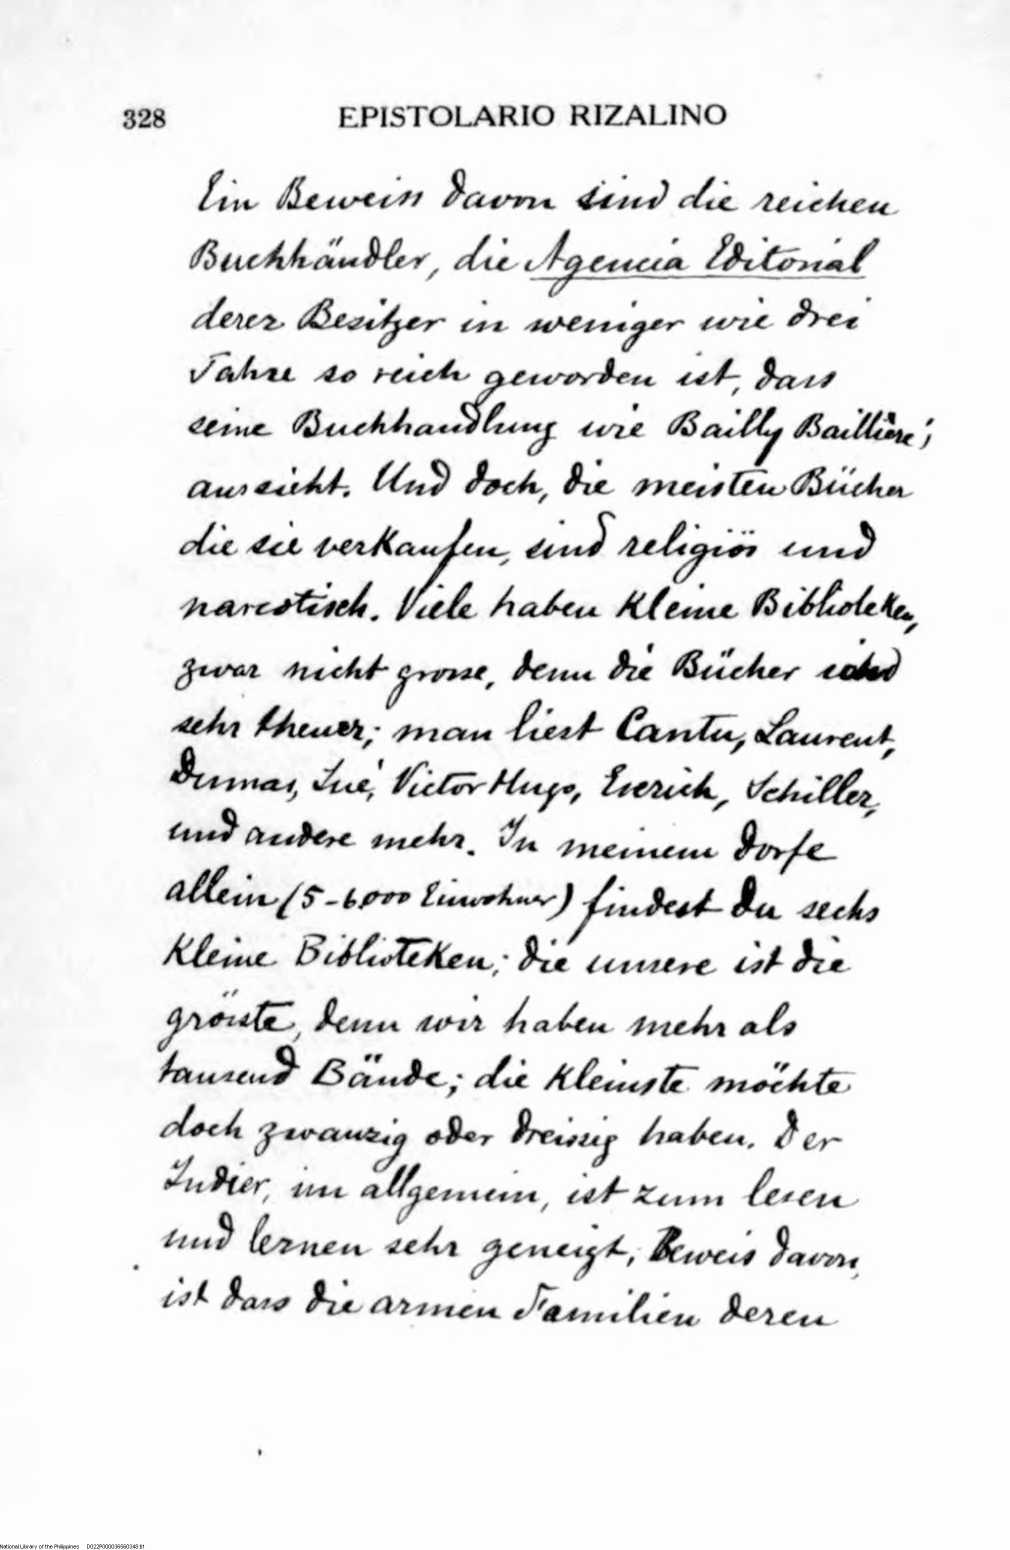 328 EPISTOLARIO RIZALINO
Ein Beweiss davon sind die reichen
Buchhändler, die Agencia Editorial
derer Besitzer in weniger wie drei
Jahre so reich geworden ist, dass
seine Buchhandlung wie Bailly Baillière's
aussieht. Und doch, die meisten Bücher
die sie verkaufen, sind religiös und
narcotisch. Viele haben kleine Biblioteken,
zwar nicht grosse, denn die Bücher sind
sehr theuer; man liest Cantu, Laurent,
Dumas, Sué, Victor Hugo, Escrich, Schiller,
und andere mehr. In meinem Dorfe
allein (5-6000 Einwohner) findest Du sechs
kleine Biblioteken; die unsere ist die
grösste, denn wir haben mehr als
tausend Bände; die kleinste möchte
doch zwanzig oder dreissig haben. Der
Indier, im allgemein, ist zum lesen
und lernen sehr geneigt; Beweis davon,
ist dass die armen Familien deren
National Library of the Philippines